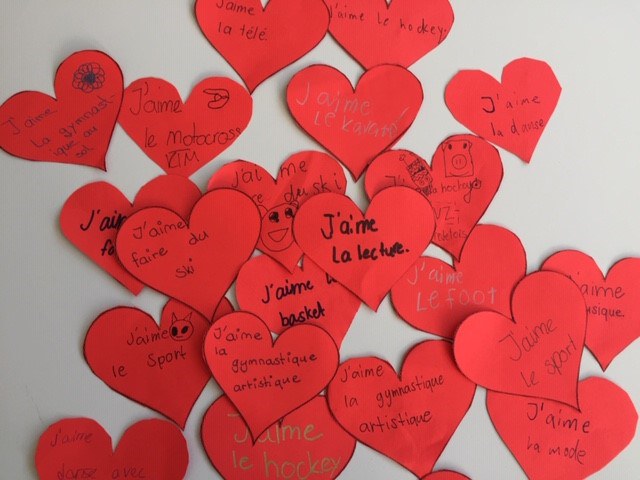 J'aime
la télé
J'aime le hockey.
J'aime
la gymnast-
ique au
sol
J'aime
le Motocross
KTM
J'aime
LE KARATÉ
J'aime
la danse
J'aime
du ski
J'aime
faire du
ski
J'aime
La lecture.
J'aime
LE FOOT
J'aime
basket
aime
usique.
J'aime
le sport
J'aime
la
gymnastique
artistique
J'aime
la gymnastique
artistique
J'aime
le sport
J'aime
le hockey
J'aime
la mode
J'aime
danse avec